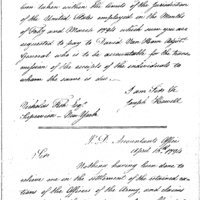 tion taken within the limits of the Jurisdiction
of the United States employed in the Months
of July and March 1794 which sum you are
requested to pay to David Van Horn Adjt.
General who is to be accountable for the trans-
mission of the receipts of the individuals to
whom the same is due.
I am Sir &c
Joseph Howell
Nicholas Fish Esqr.
Supervisor New York
W. D. Accountants Office
April 1794
Sir
Nothing having been done to
relieve me on the settlement of the retained ra-
tions of the Officers of the Army, and claims